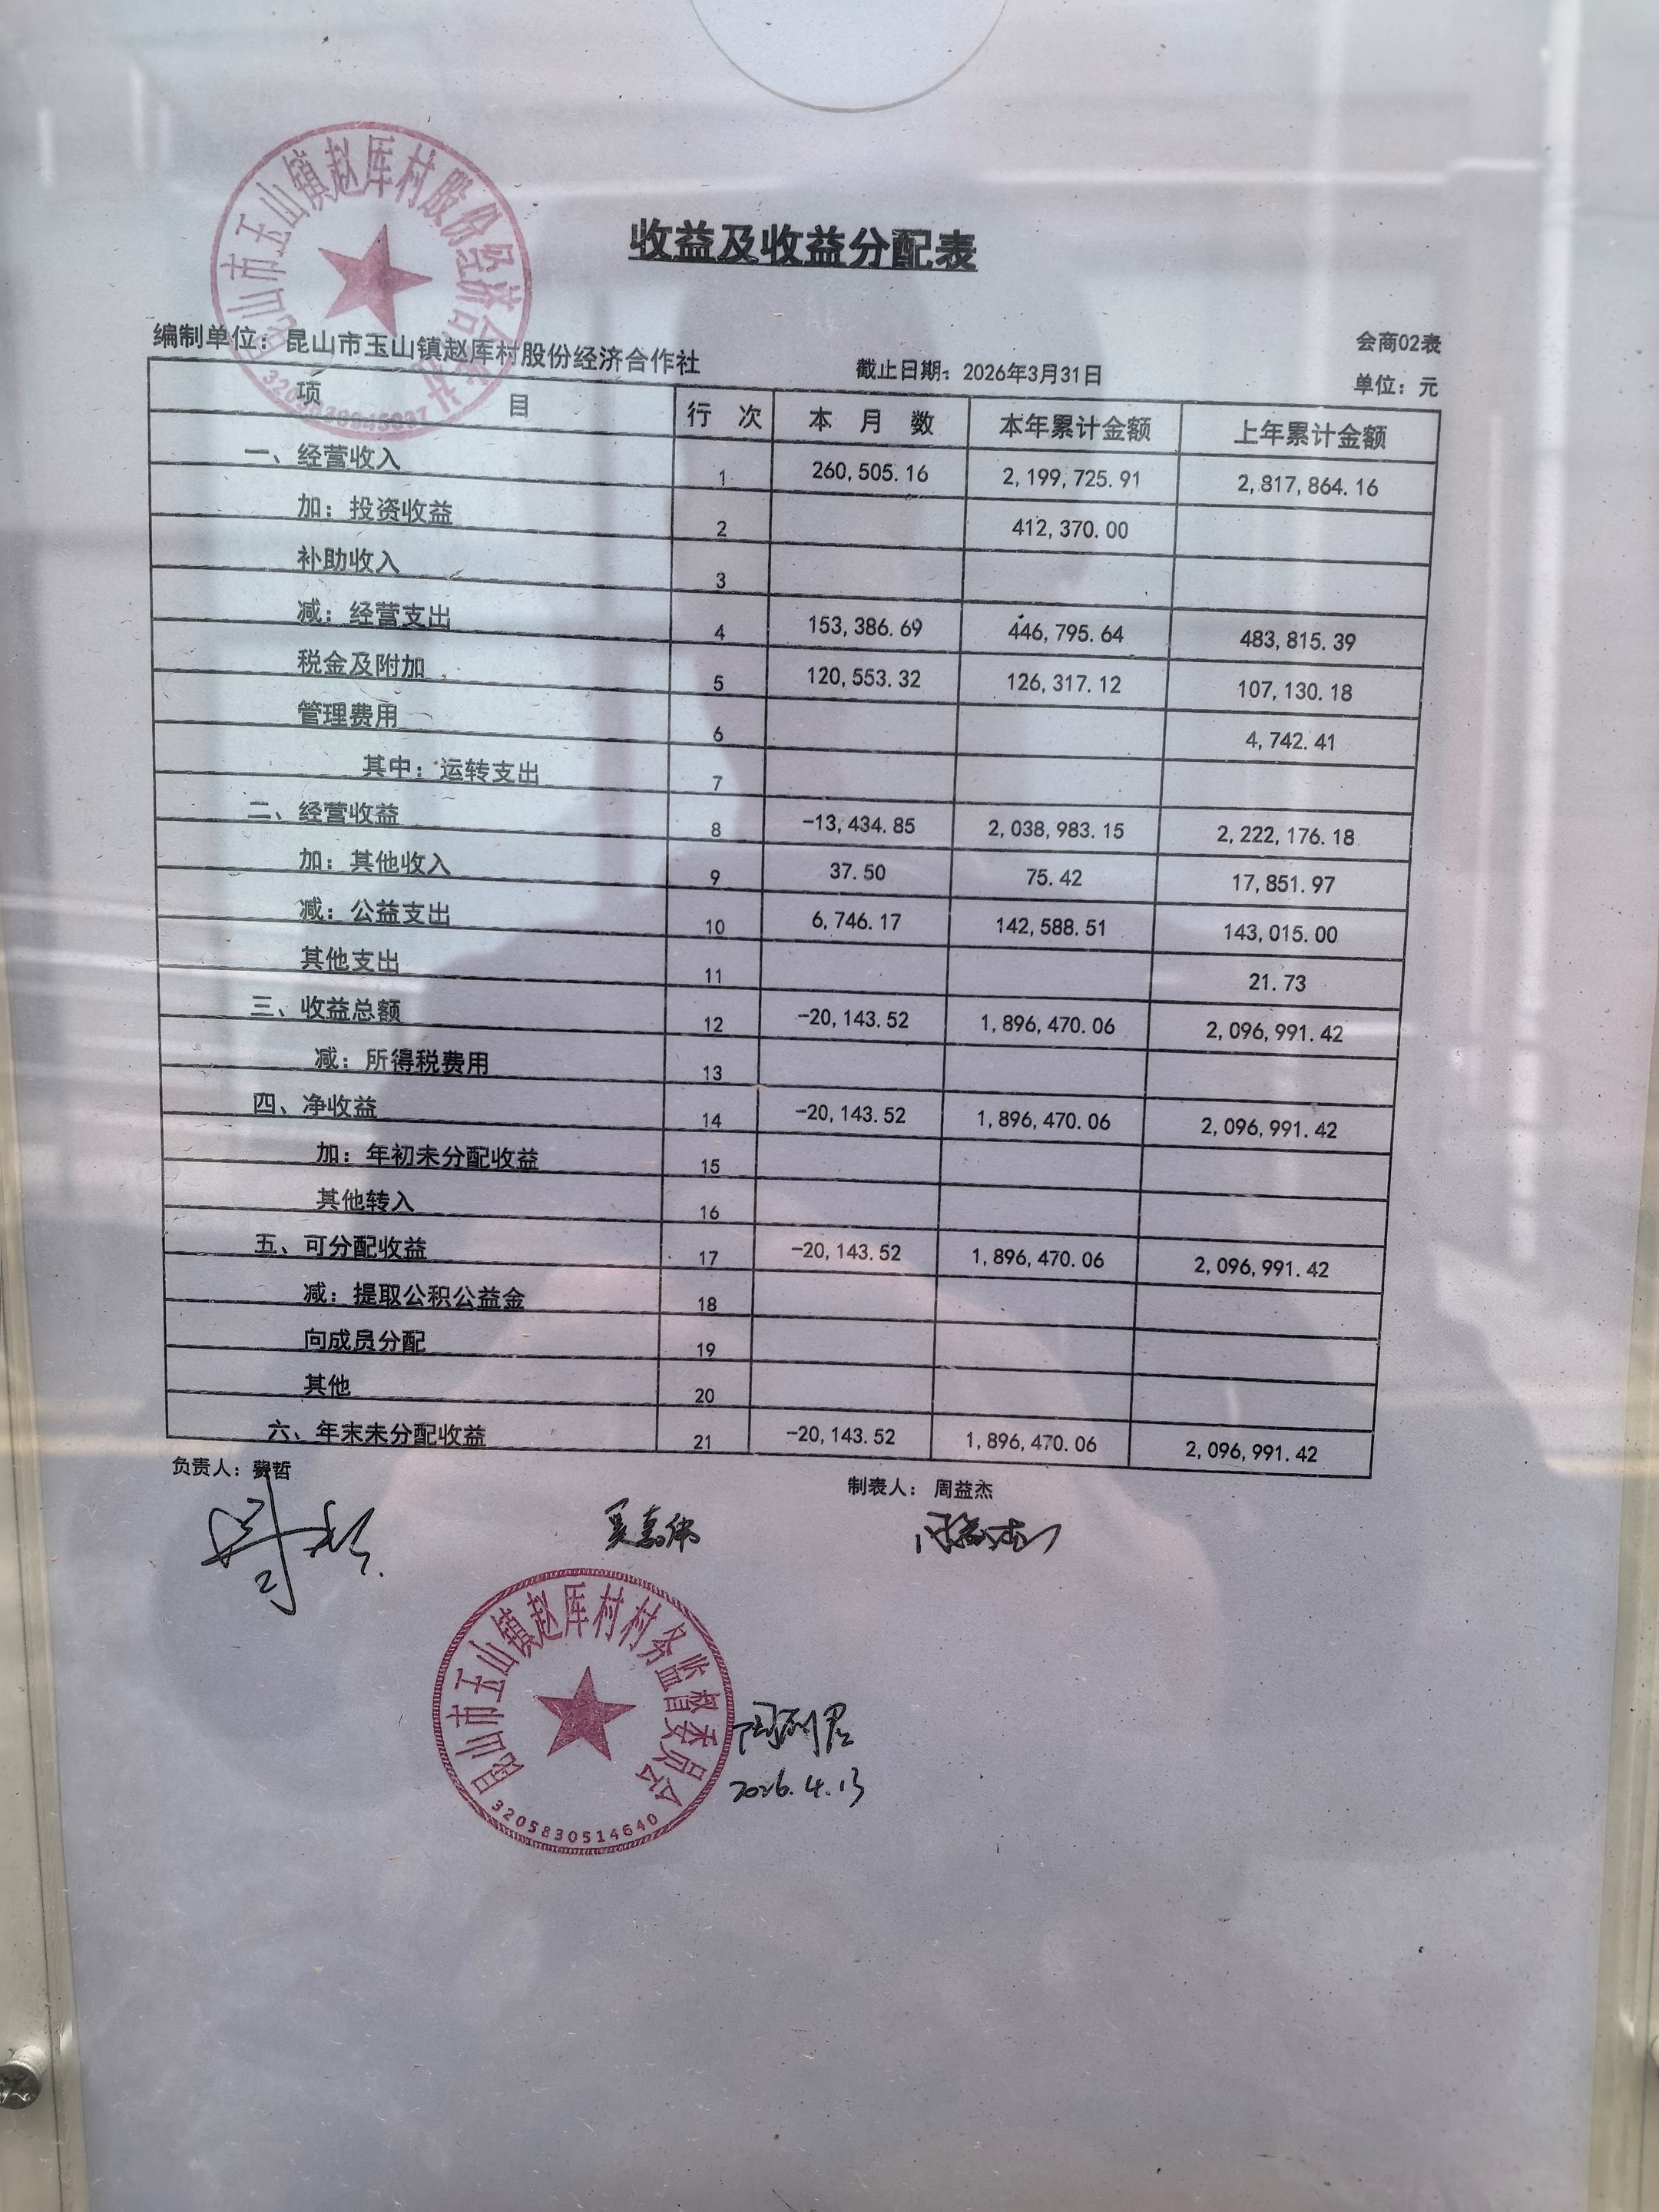 昆山市玉山镇赵厍村股份经济合作社
收益及收益分配表
会商02表
编制单位：昆山市玉山镇赵厍村股份经济合作社 截止日期：2026年3月31日 单位：元
项 目 行 次 本 月 数 本年累计金额 上年累计金额
一、经营收入 1 260,505.16 2,199,725.91 2,817,864.16
加：投资收益 2 412,370.00
补助收入 3
减：经营支出 4 153,386.69 446,795.64 483,815.39
税金及附加 5 120,553.32 126,317.12 107,130.18
管理费用 6 4,742.41
其中：运转支出 7
二、经营收益 8 -13,434.85 2,038,983.15 2,222,176.18
加：其他收入 9 37.50 75.42 17,851.97
减：公益支出 10 6,746.17 142,588.51 143,015.00
其他支出 11 21.73
三、收益总额 12 -20,143.52 1,896,470.06 2,096,991.42
减：所得税费用 13
四、净收益 14 -20,143.52 1,896,470.06 2,096,991.42
加：年初未分配收益 15
其他转入 16
五、可分配收益 17 -20,143.52 1,896,470.06 2,096,991.42
减：提取公积公益金 18
向成员分配 19
其他 20
六、年末未分配收益 21 -20,143.52 1,896,470.06 2,096,991.42
负责人：费哲 制表人：周益杰
费哲 吴嘉伟 周益杰
昆山市玉山镇赵厍村村务监督委员会
3205830514640
2026.4.13